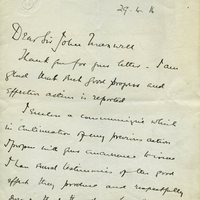 29.4.16
Dear Sir John Maxwell
Thank you for your letter. I am
glad that such good progress and
effective action is reported
I enclose a communiqué which
in continuation of my previous action
I propose with your concurrence to issue
I have had testimonies of the good
effect they produce and respectfully